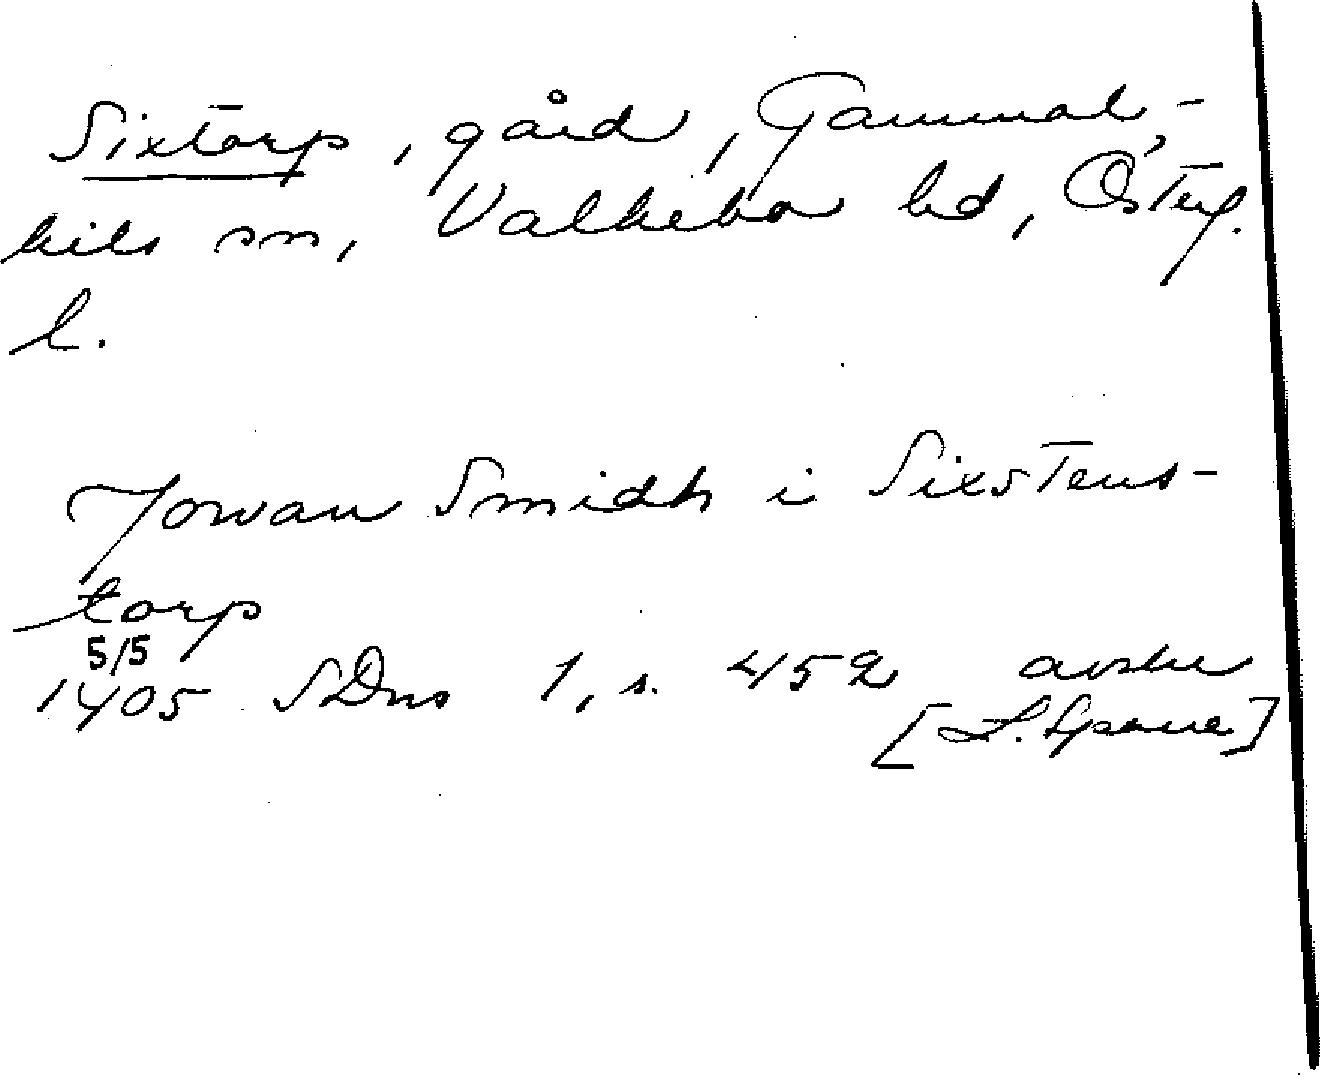 Sixtorp, gård, Gammal-
kils sn, Valkebo hd, Östergl.
l.
Jowan Smidh i Sixstens-
torp
5/5
1405 SDns 1, s. 452 avskr
[L. Sparre]